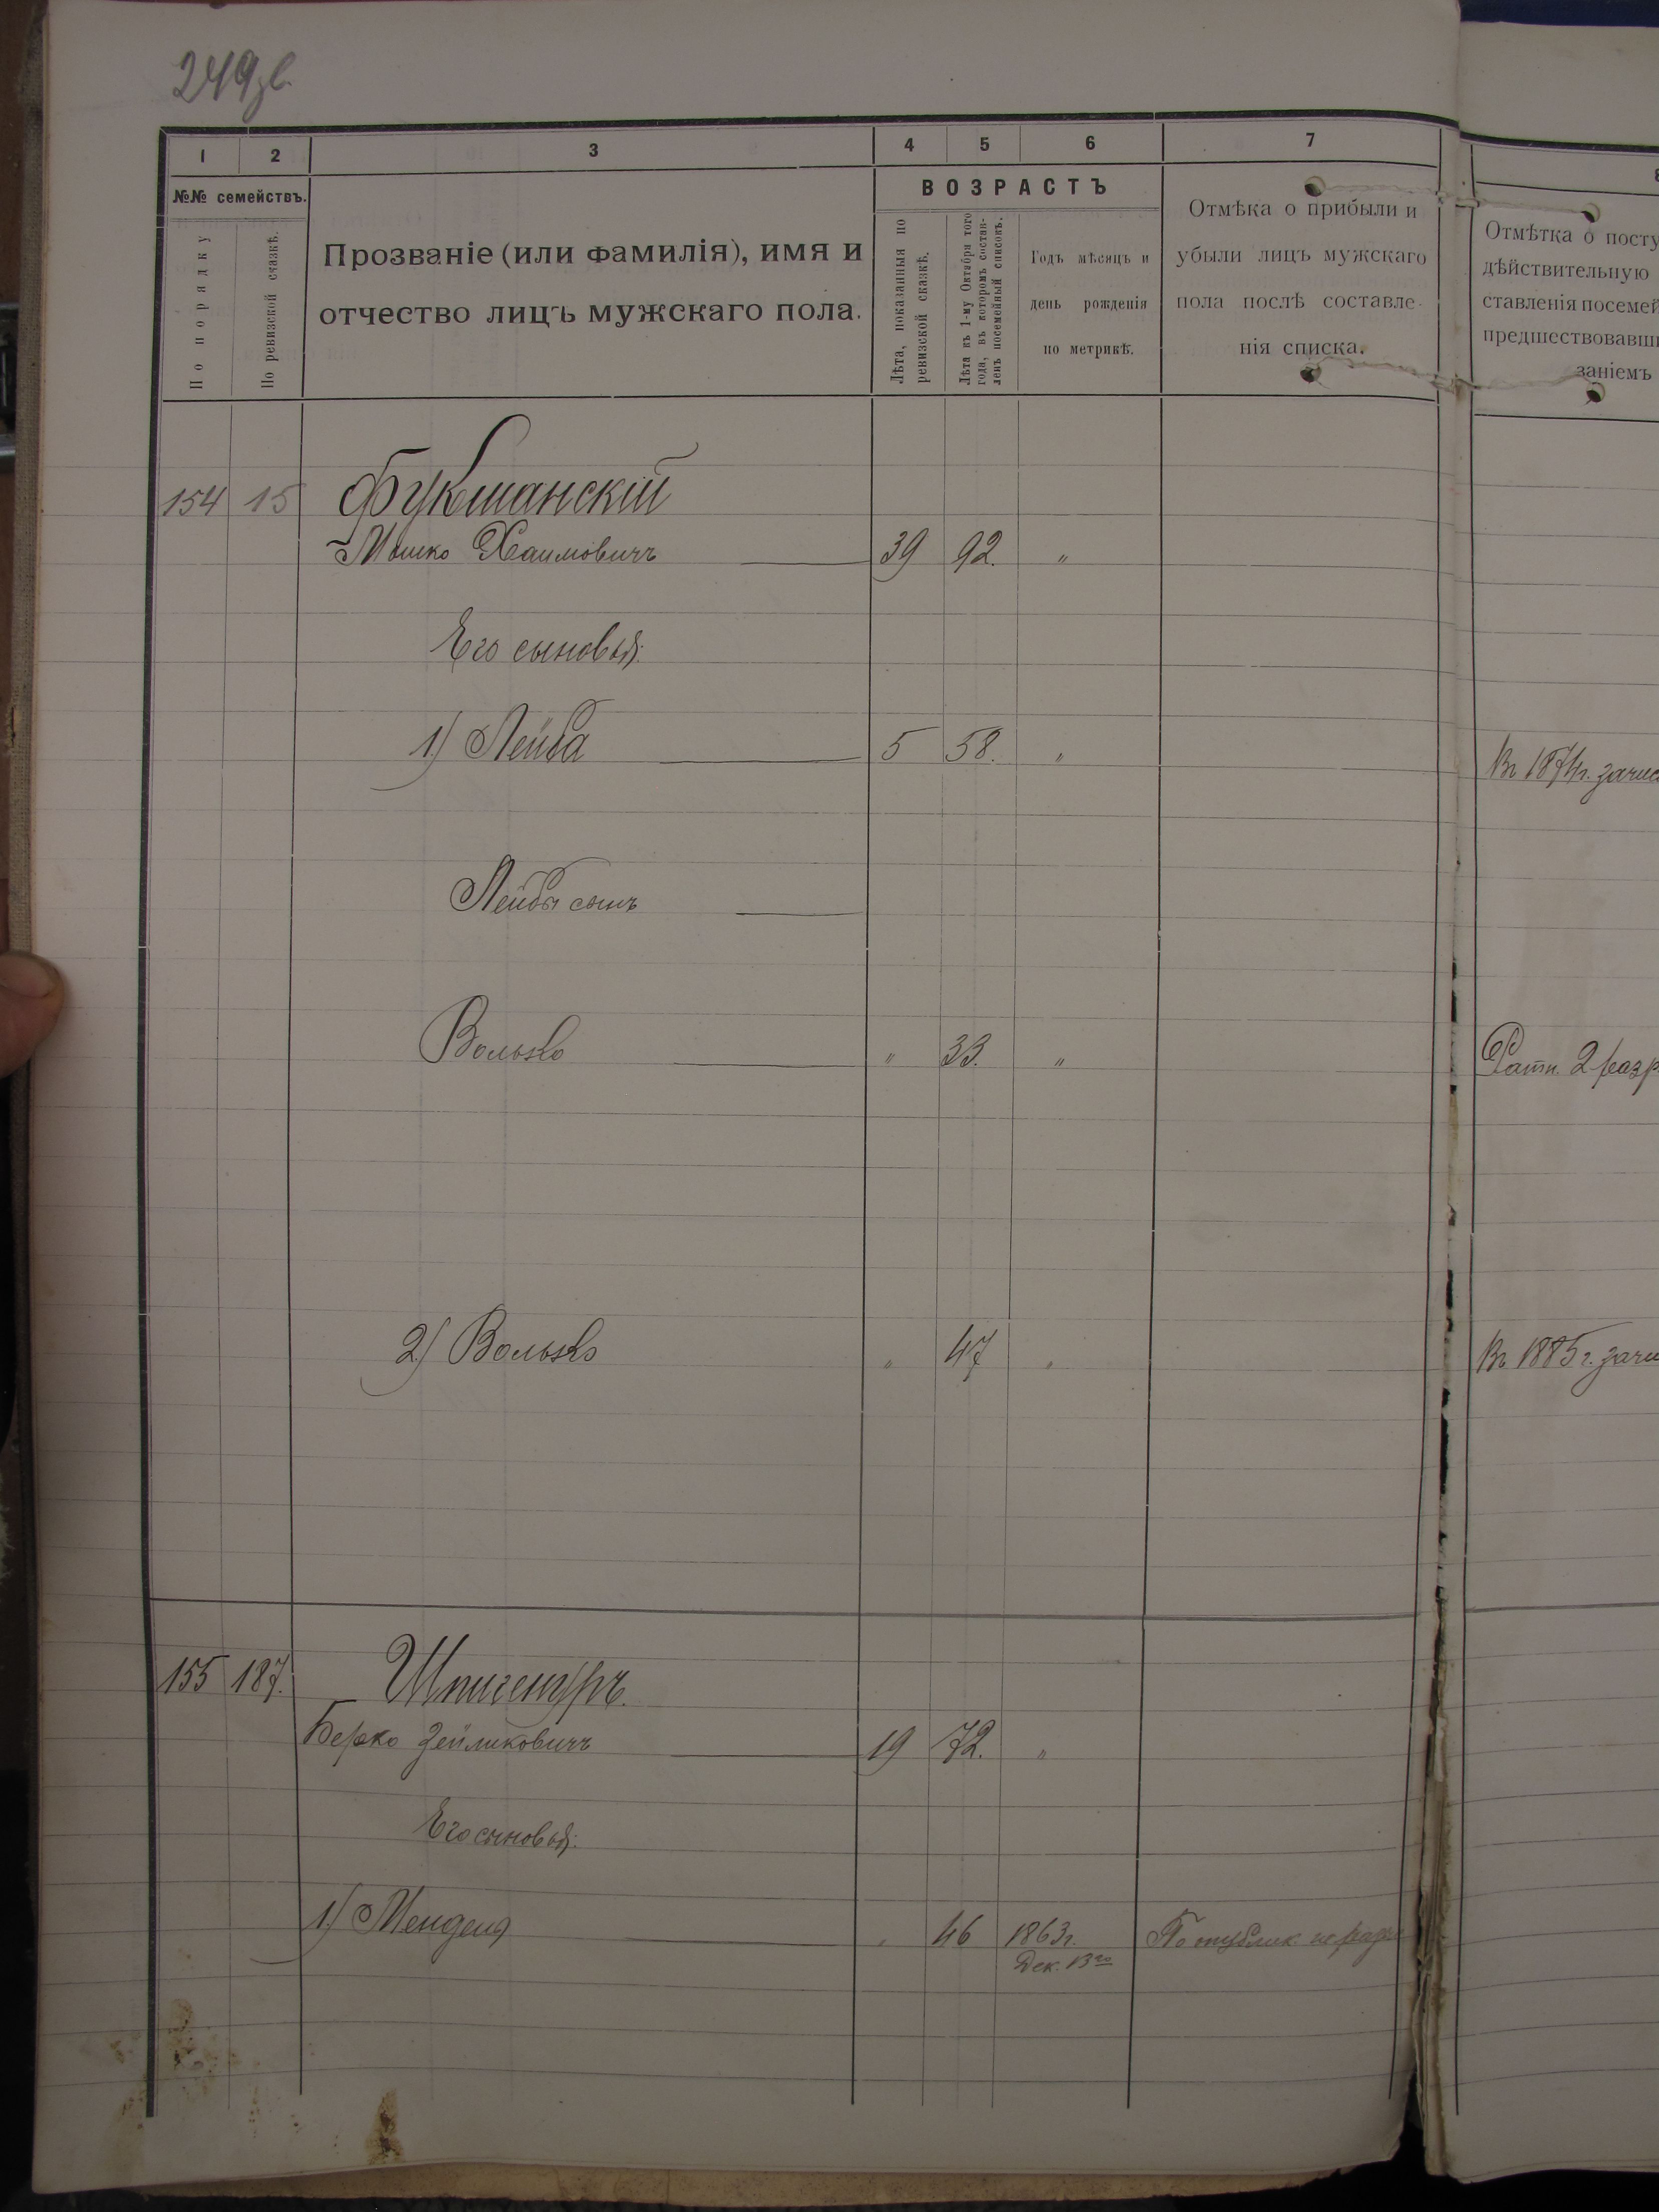 249зв.
1 2 3 4 5 6 7
№№ семействъ.
По порядку
По ревизской сказкѣ.
Прозваніе (или фамилія), имя и
отчество лицъ мужскаго пола.
ВОЗРАСТЪ
Лѣта, показанныя по
ревизской сказкѣ.
Лѣта къ 1-му Октября того
года, въ которомъ состав-
ленъ посемейный списокъ.
Годъ мѣсяцъ и
день рожденія
по метрикѣ.
Отмѣка о прибыли и
убыли лицъ мужскаго
пола послѣ составле-
нія списка.
Отмѣтка о посту
дѣйствительную
ставленія посемей
предшествовавши
заніемъ
154 15 Фукшанскій
Мошко Хаимовичъ 39 92. "
Его сыновья:
1) Лейба 5 58. "
Въ 1874г. зачис
Лейбы сынъ
Волько " 33. "
Ратн. 2 разр
2) Волько " 47 "
Въ 1885 г. зачи
155 187. Шпигендръ.
Берко Зейликовичъ 19 72. "
Его сыновья:
1) Мендель " 46 1863г.
Дек. 13го